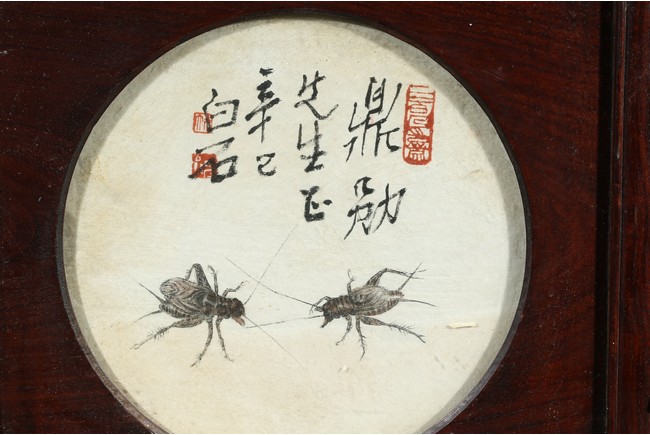 鼎勛
先生正
辛巳
白石